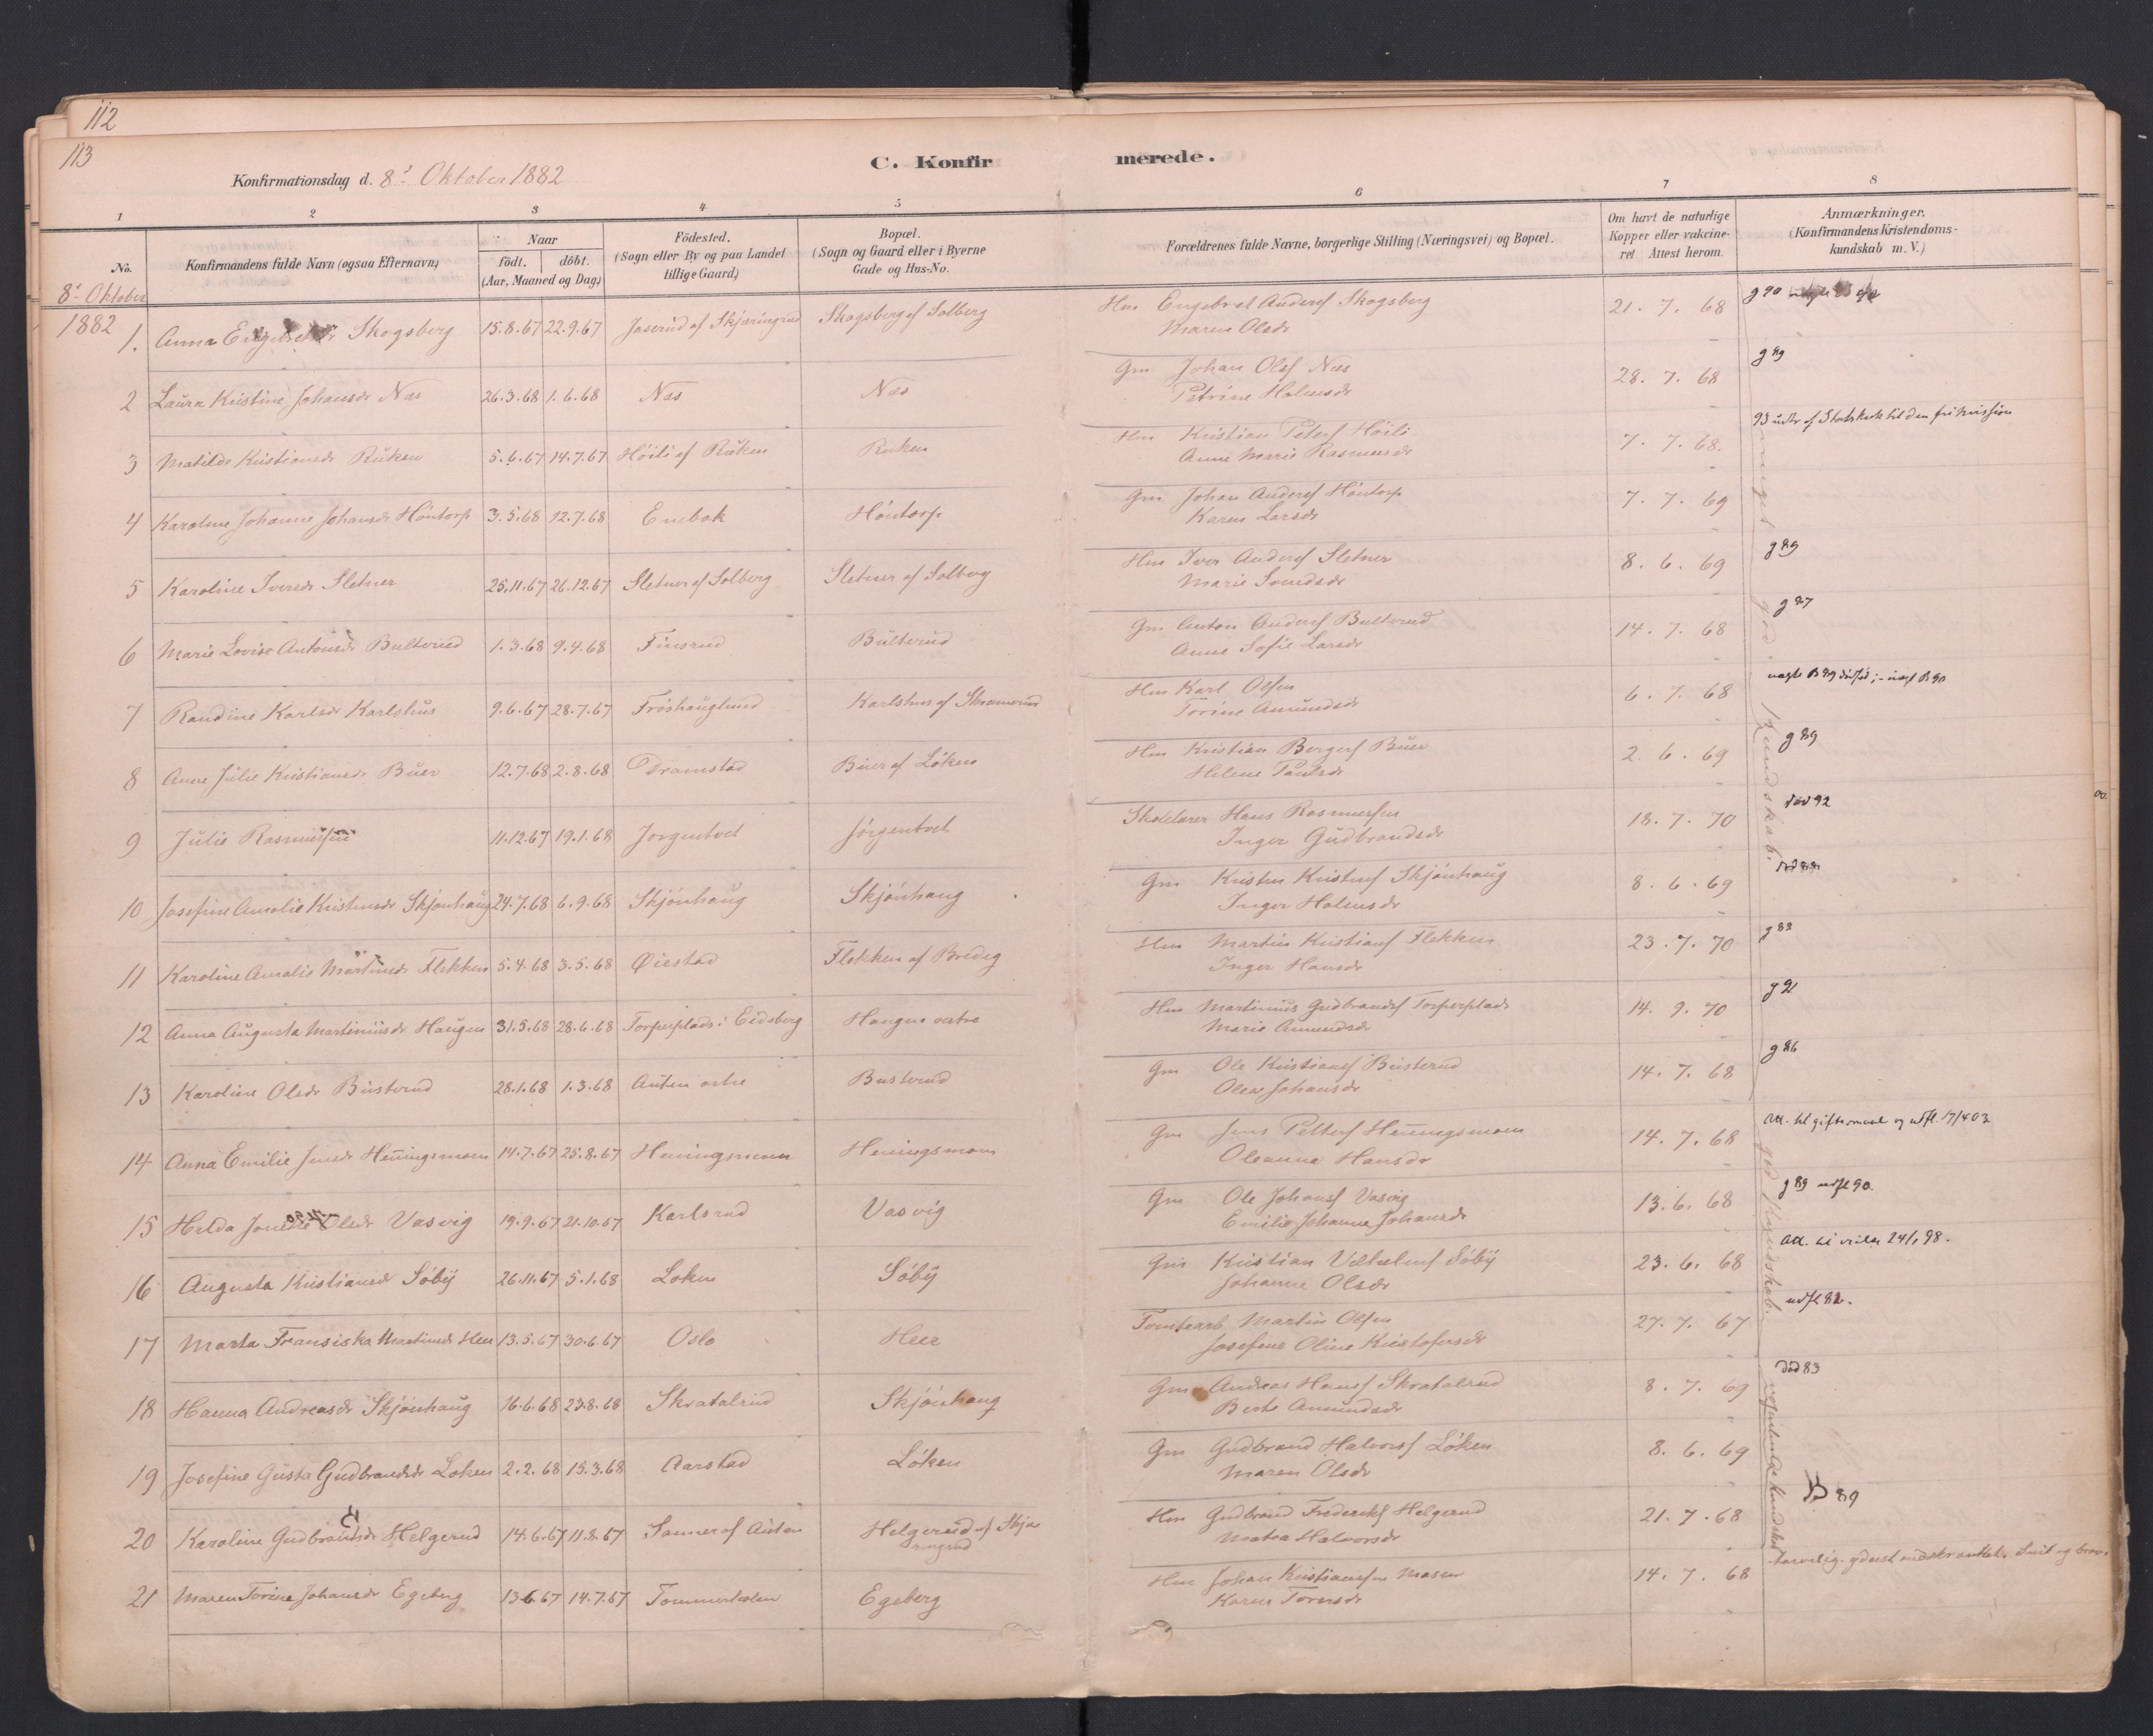 112
113
C. Konfirmerede.
Konfirmationsdag d. 8de Oktober 1882
1 2 3 4 5 6 7 8
No.
Konfirmandens fulde Navn (ogsaa Efternavn)
Naar
født. døbt.
(Aar, Maaned og Dag)
Fødested.
(Sogn eller By og paa Landet
tillige Gaard)
Bopæl.
(Sogn og Gaard eller i Byerne
Gade og Hus-No.
Forældrenes fulde Navne, borgerlige Stilling (Næringsvei) og Bopæl.
Om havt de naturlige
Kopper eller vakcine-
ret Attest herom.
Anmærkninger.
(Konfirmandens Kristendoms-
kundskab m. V.)
8de Oktober
1882
1. Anna Skogsberg 15.8.67 22.9.67 Jaserud af Skjæringrud Skogsberg af Solberg Hm Engebret Andersf Skogsberg 21. 7. 68 g 90
Maren Olsdr
2 Laura Kristine Johansdr Næs 26.3.68 1.6.68 Næs Næs Gm Johan Olsf Næs 28. 7. 68 g 89
Petrine Holmsdr
3 Matilde Kristiansdr Ruken 5.6.67 14.7.67 Høili af Ruken Ruken Hm Kristian Petersf Høili 7. 7. 68. 93 udtr af Statskirk til den fri Mission
Anne Marie Rasmusdr
4 Karoline Johanne Johansdr Høntorp 3.5.68 12.7.68 Enebak Høntorp Gm Johan Andersf Høntorp 7. 7. 69
Karen Larsdr
5 Karoline Iversdr Sletner 25.11.67 26.12.67 Sletner af Solberg Sletner af Solberg Hm Iver Andersf Sletner 8. 6. 69 g 89
Marie Svendsdr
6 Marie Lovise Antonsdr Bulterud 1.3.68 9.4.68 Finsrud Bulterud Gm Anton Andersf Bulterud 14. 7. 68 g 87
Anne Sofie Larsdr
7 Randine Karlsdr Karlshus 9.6.67 28.7.67 Frøshauglund Karlshus af Skramerud Hm Karl Olsen 6. 7. 68
Torine Amundsdr
8 Anne Julie Kristiansdr Buer 12.7.68 2.8.68 Dramstad Buer af Løken Hm Kristian Bergersf Buer 2. 6. 69 g 89
Helene Paulsdr
9 Julie Rasmussen 11.12.67 19.1.68 Jorgentvet Jørgentvet Skolelærer Hans Rasmussen 18. 7. 70 død 92
Inger Gudbrandsdr
10 Josefine Amalie Kristensdr Skjønhaug 24.7.68 6.9.68 Skjønhaug Skjønhaug Gm Kristen Kristensf Skjønhaug 8. 6. 69
Inger Holmsdr
11 Karoline Amalie Martinsdr Flekken 5.4.68 3.5.68 Øiestad Flekken af Bredeg Hm Martin Kristiansf Flekken 23. 7. 70 g 88
Inger Hansdr
12 Anna Augusta Martinusdr Haugen 31.5.68 28.6.68 Torperplads i Eidsberg Haugen østre Hm Martinus Gudbrandsf Torperplads 14. 9. 70 g 91
Marie Amundsdr
13 Karoline Olsdr Busterud 28.1.68 1.3.68 Auten østre Busterud Gm Ole Kristiansf Busterud 14. 7. 68 g 86
Olea Johansdr
14 Anna Emilie Jensdr Henningsmoen 14.7.67 25.8.67 Heningsmoen Heningsmoen Gm Jens Pettersf Henningsmoen 14. 7. 68 Att. til giftermaal og udfl. 17/4 03
Oleanna Hansdr
15 Hilda Olsdr Vasvig 19.9.67 21.10.67 Karlsrud Vasvig Gm Ole Johansf Vasvig 13. 6. 68 g 89 udfl 90.
Emilie Johanne Johansdr
16 Augusta Kristiansdr Søby 26.11.67 5.1.68 Løken Søby Gm Kristian Vilhelmsf Søby 23. 6. 68
Johanne Olsdr
17 Marta Fransiska Martinsdr Heer 13.5.67 30.6.67 Oslo Heer Tomtearb. Martin Olsen 27. 7. 67 udfl 82.
Josefine Oline Kristofersdr
18 Hanna Andreasdr Skjønhaug 16.6.68 23.8.68 Skratalrud Skjønhaug Gm Andreas Hansf Skratalrud 8. 7. 69 død 83
Berte Amundsdr
19 Josefine Gusta Gudbrandsdr Løken 2.2.68 15.3.68 Aarstad Løken Gm Gudbrand Halvorsf Løken 8. 6. 69
Maren Olsdr
20 Karoline Gudbrandsdr Helgerud 14.6.67 11.8.67 Sanner af Auten Helgerud af Skjæ Hm Gudbrand Frederiksf Helgerud 21. 7. 68 B 89
ringrud Matea Halvorsdr
21 Maren Torine Johansdr Egeberg 13.6.67 14.7.67 Tommerholen Egeberg Hm Johan Kristiansen Moser 14. 7. 68 Tarvelig. yderst indskrænket. Snil og brav.
Karen Torersdr
meget god Kundskab.
god Kundskab.